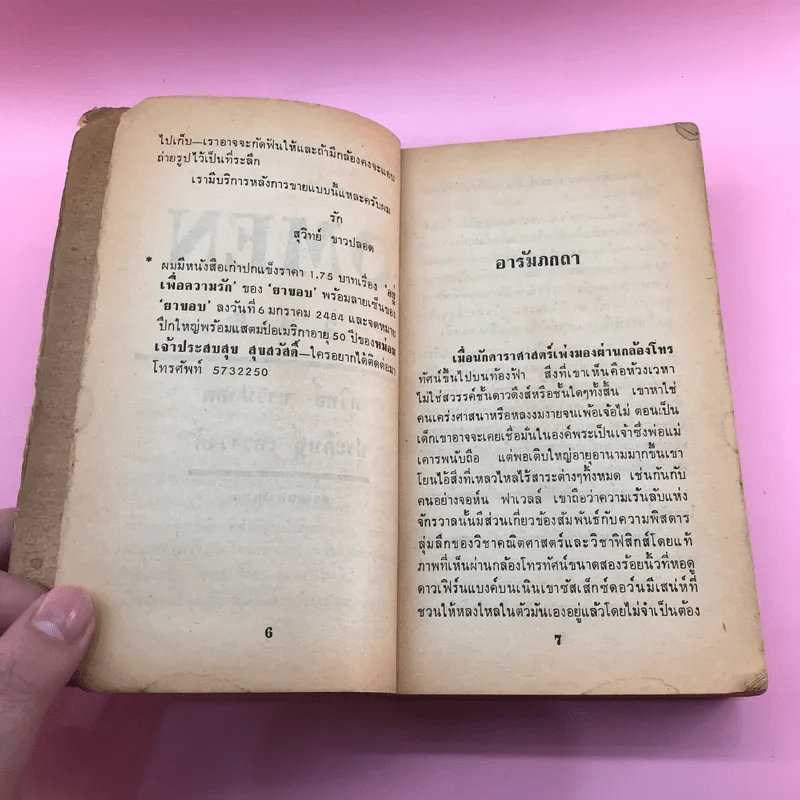 ไปเก็บ—เราอาจจะกัดฟันให้และถ้ามีกล้องคงจะแอบ
ถ่ายรูปไว้เป็นที่ระลึก
เรามีบริการหลังการขายแบบนี้แหละครับผม
รัก
สุวิทย์ ขาวปลอด
* ผมมีหนังสือเก่าปกแข็งราคา 1.75 บาทเรื่อง 'อยู่
เพื่อความรัก' ของ 'ยาขอบ' พร้อมลายเซ็นของ
'ยาขอบ' ลงวันที่ 6 มกราคม 2484 และจดหมาย
ปึกใหญ่พร้อมแสตมป์อเมริกาอายุ 50 ปีของหม่อม
เจ้าประสบสุข สุขสวัสดิ์—ใครอยากได้ติดต่อมา
โทรศัพท์ 5732250
6
อารัมภกถา
เมื่อนักดาราศาสตร์เพ่งมองผ่านกล้องโทร
ทัศน์ขึ้นไปบนท้องฟ้า สิ่งที่เขาเห็นคือห้วงเวหา
ไม่ใช่สวรรค์ชั้นดาวดึงส์หรือชั้นใดๆทั้งสิ้น เขาหาใช่
คนเคร่งศาสนาหรือหลงงมงายจนเพ้อเจ้อไม่ ตอนเป็น
เด็กเขาอาจจะเคยเชื่อมั่นในองค์พระเป็นเจ้าซึ่งพ่อแม่
เคารพนับถือ แต่พอเติบใหญ่อายุอานามมากขึ้นเขา
โยนไอ้สิ่งที่เหลวไหลไร้สาระต่างๆทิ้งหมด เช่นกันกับ
คนอย่างจอห์น ฟาเวลล์ เขาถือว่าความเร้นลับแห่ง
จักรวาลนั้นมีส่วนเกี่ยวข้องสัมพันธ์กับความพิสดาร
ลุ่มลึกของวิชาคณิตศาสตร์และวิชาฟิสิกส์โดยแท้
ภาพที่เห็นผ่านกล้องโทรทัศน์ขนาดสองร้อยนิ้วที่หอดู
ดาวเฟิร์นแบงค์บนเนินเขาซัสเส็กซ์ดอว์นมีเสน่ห์ที่
ชวนให้หลงใหลในตัวมันเองอยู่แล้วโดยไม่จำเป็นต้อง
7